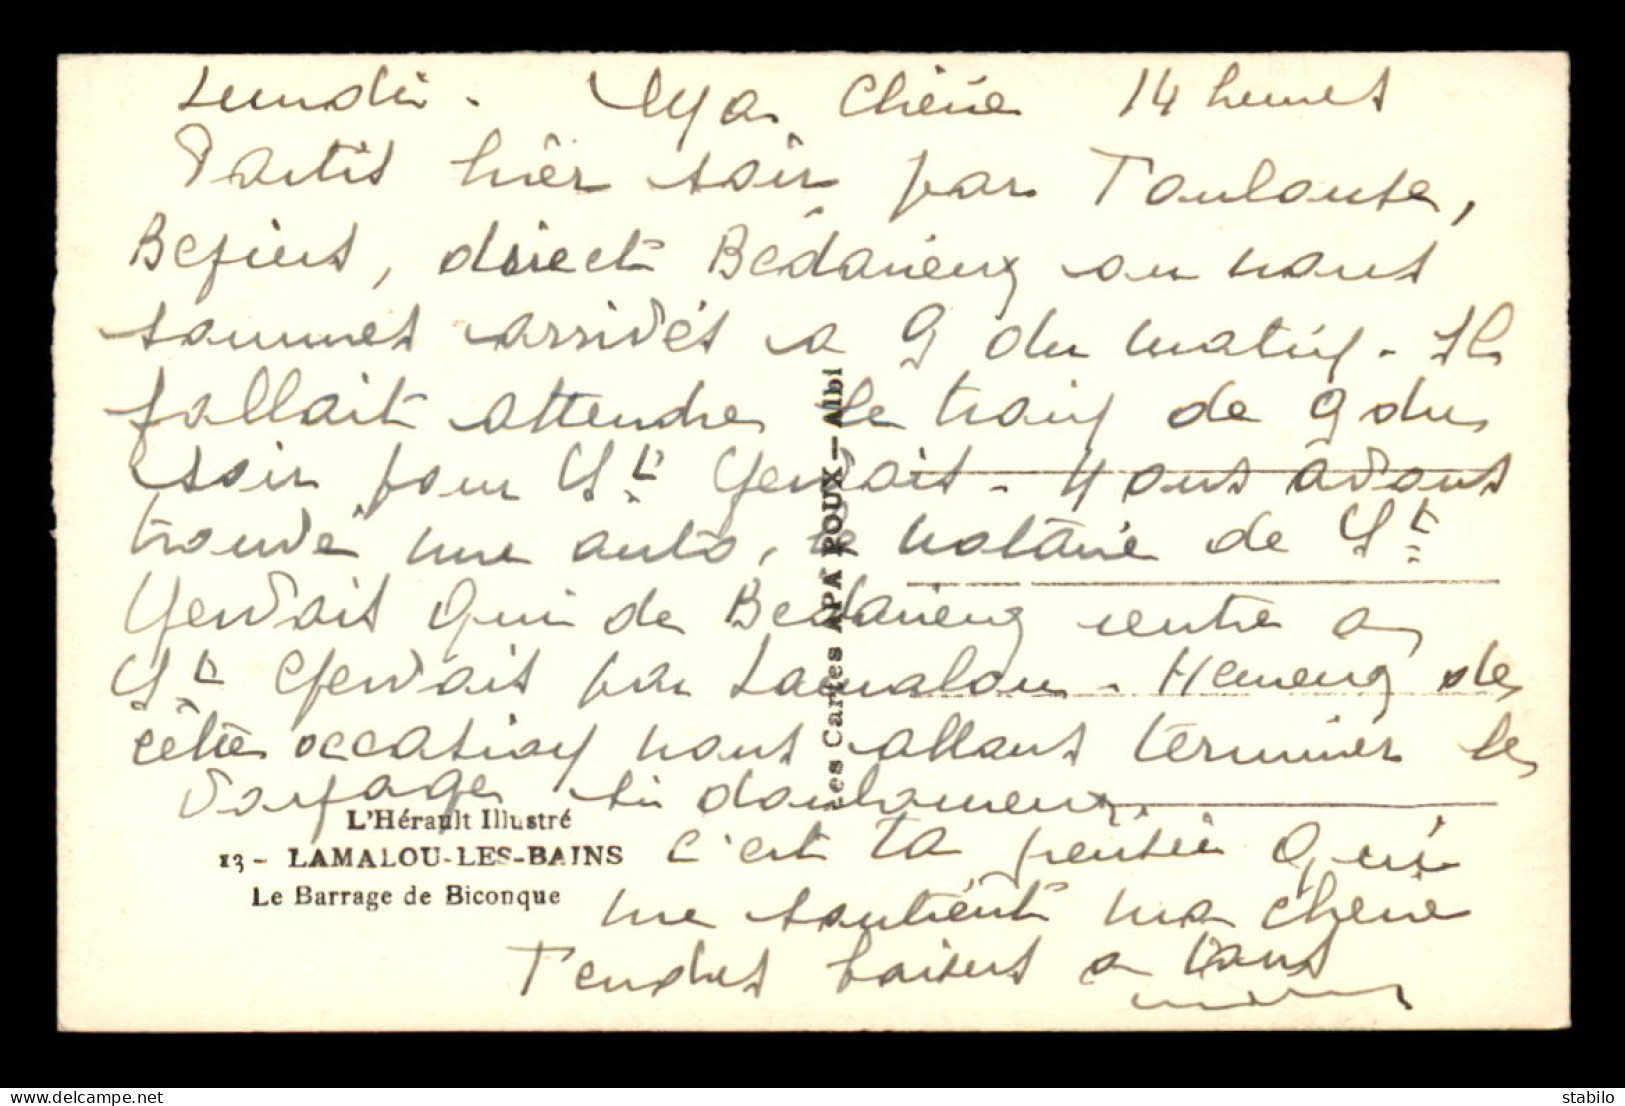 Lundi. Lya Chérie 14 heures
Partis hier soir par Toulouse,
Beziers, direct Bédarieux ou nous
sommes arrivés a 9 du matin. Il
fallait attendre le train de 9 du
soir pour St Gervais. Nous avons
trouvé une auto, le notaire de St
Gervais qui de Bedarieux rentre a
St Gervais par Lamalou. Heureux de
cette occasion nous allons terminer le
voyage si douloureux.
c'est ta pensée qui
me soutient ma cherie
Tendres baisers a tous
L'Hérault Illustré
13 - LAMALOU-LES-BAINS
Le Barrage de Biconque
Les Cartes APA POUX - Albi
delcampe.net
stabilo